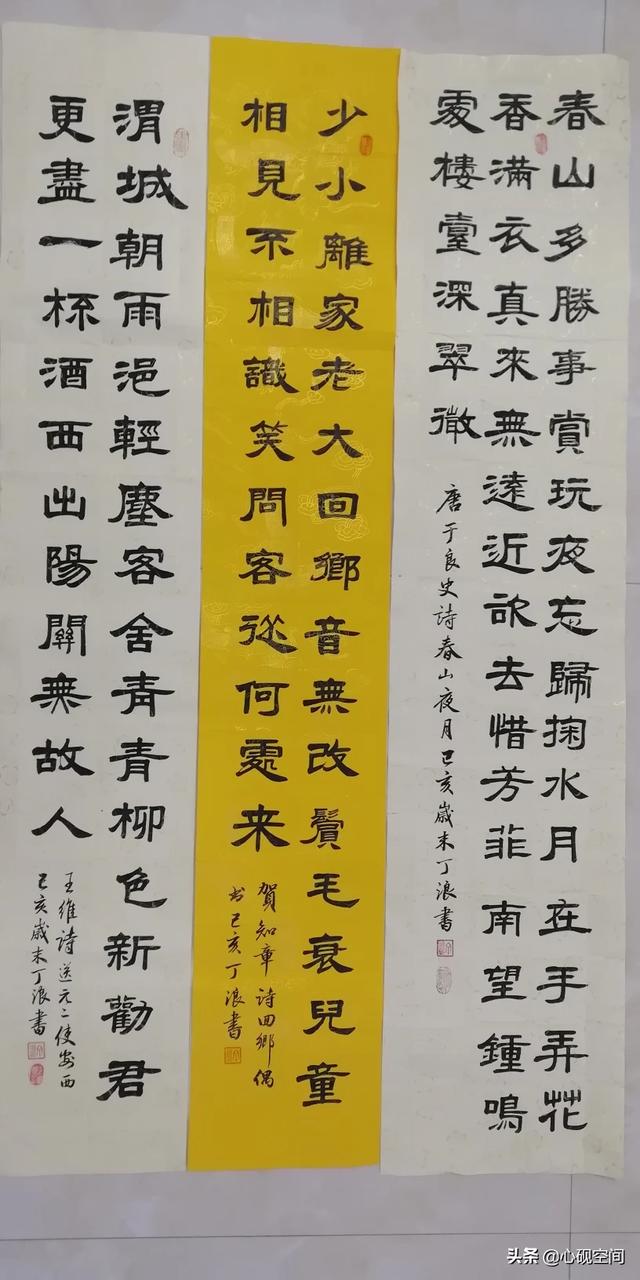 春山多勝事賞玩夜忘歸掬水月在手弄花
香滿衣真來無遠近欲去惜芳菲南望鍾鳴
處樓臺深翠微
唐于良史詩春山夜月己亥歲末丁浪書
少小離家老大回鄉音無改鬢毛衰兒童
相見不相識笑問客從何處来
賀知章詩回鄉偶
书己亥丁浪書
渭城朝雨浥輕塵客舍青青柳色新勸君
更盡一杯酒西出陽關無故人
王維詩送元二使安西
己亥歲末丁浪書
头条 @心砚空间